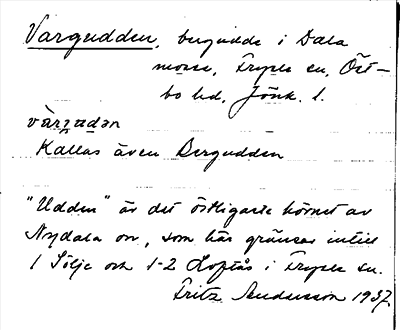 Vargudden, bergudde i Dala
mosse, Fryele sn, Öst-
bo hd, Jönk. l.
vàrgùdən
Kallas även Bergudden
"Udden" är det östligaste hörnet av
Nydala sn, som här gränsar intill
1 Sölje och 1-2 Loftås i Fryele sn.
Fritz Andersson 1937.